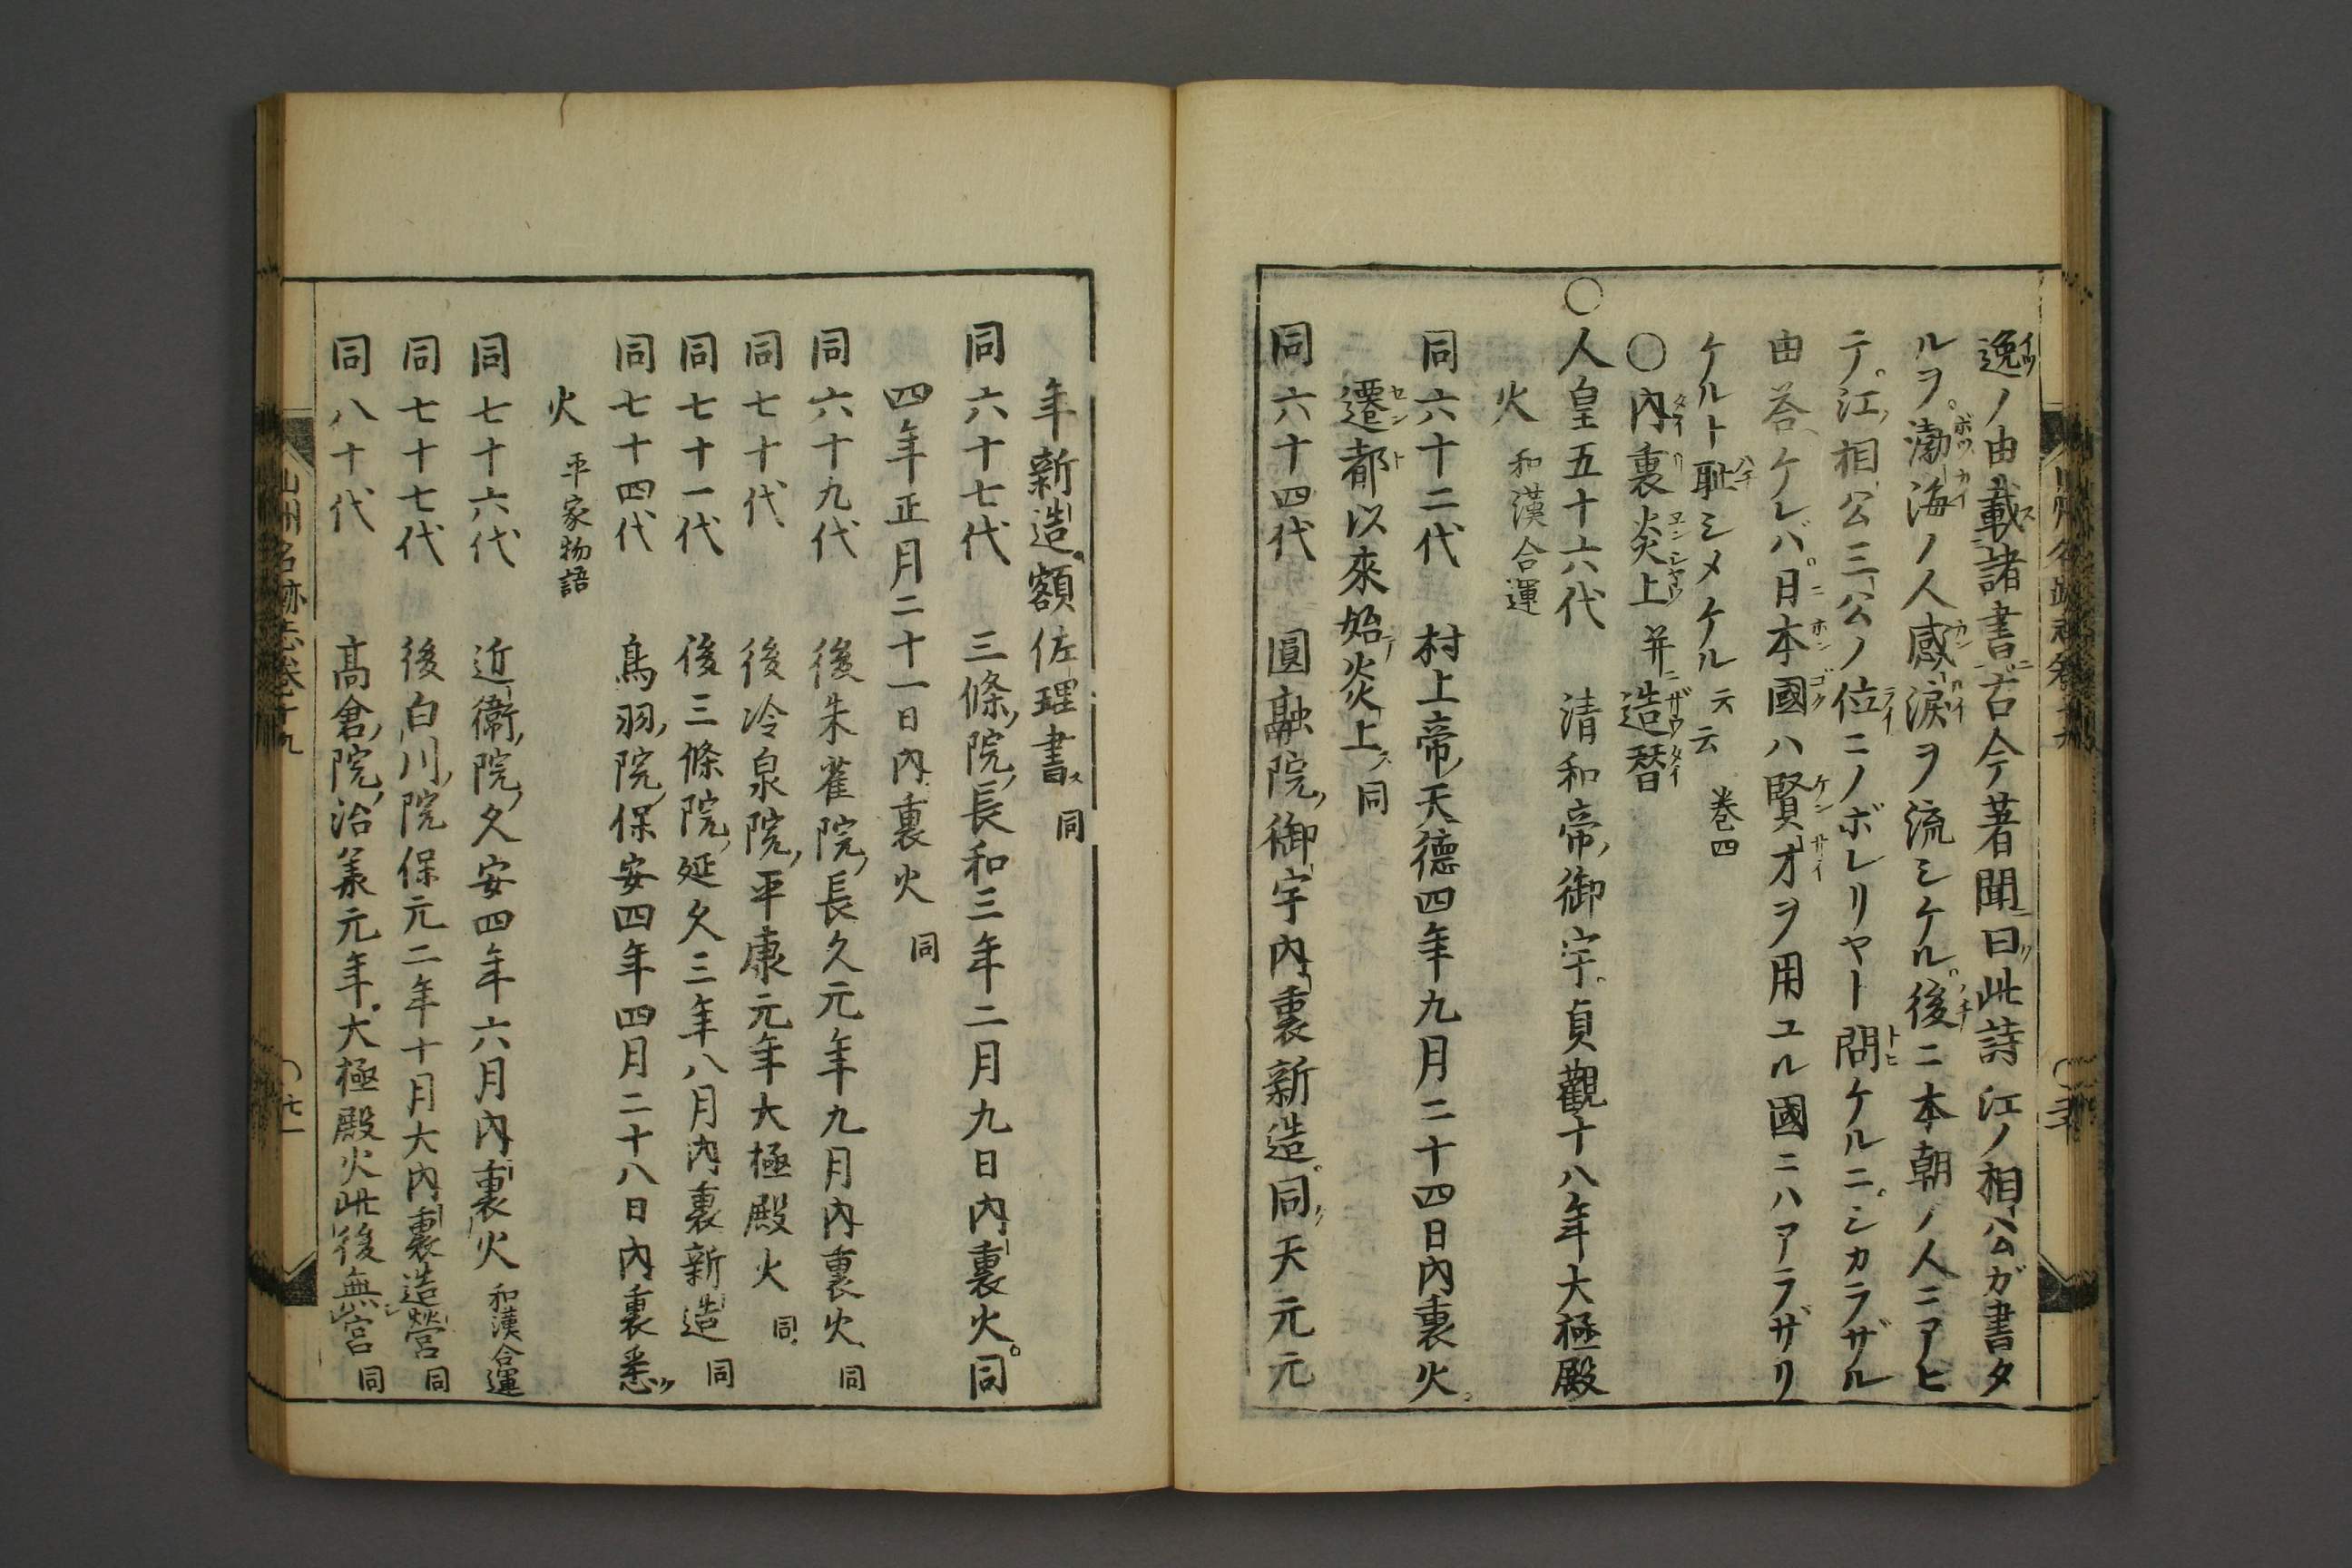 逸ノ由載諸書ニ古今著聞ニ曰ク此詩江ノ相公ガ書タ
ルヲ渤海ノ人感涙ヲ流シケル後ニ本朝ノ人ニアヒ
テ江ノ相公三公ノ位ニノボレリヤト問ケルニシカラザル
由荅ケレバ日本國ハ賢才ヲ用ユル國ニハアラザリ
ケルト耻シメケルテ云 巻四
〇内裏炎上并ニ造替
〇人皇五十六代 清和帝ノ御宇貞觀十八年大極殿
火 和漢合運
同六十二代 村上帝ノ天德四年九月二十四日内裏火
遷都以來始テ炎上ス 同
同六十四代 圓融院ノ御宇内裏新造同ク天元元
年新造額佐理書ス 同
同六十七代 三條ノ院ノ長和三年二月九日内裏火同
四年正月二十一日内裏火 同
同六十九代 後朱雀院ノ長久元年九月内裏火 同
同七十代 後冷泉院ノ平康元年大極殿火 同
同七十一代 後三條院ノ延久三年八月内裏新造 同
同七十四代 鳥羽ノ院ノ保安四年四月二十八日内裏悉ク
火 平家物語
同七十六代 近衛ノ院ノ久安四年六月内裏火 和漢合運
同七十七代 後白川ノ院保元二年十月大内裏造營 同
同八十代 髙倉ノ院ノ治羕元年大極殿火此後無シ宮 同
山州名跡志巻十九